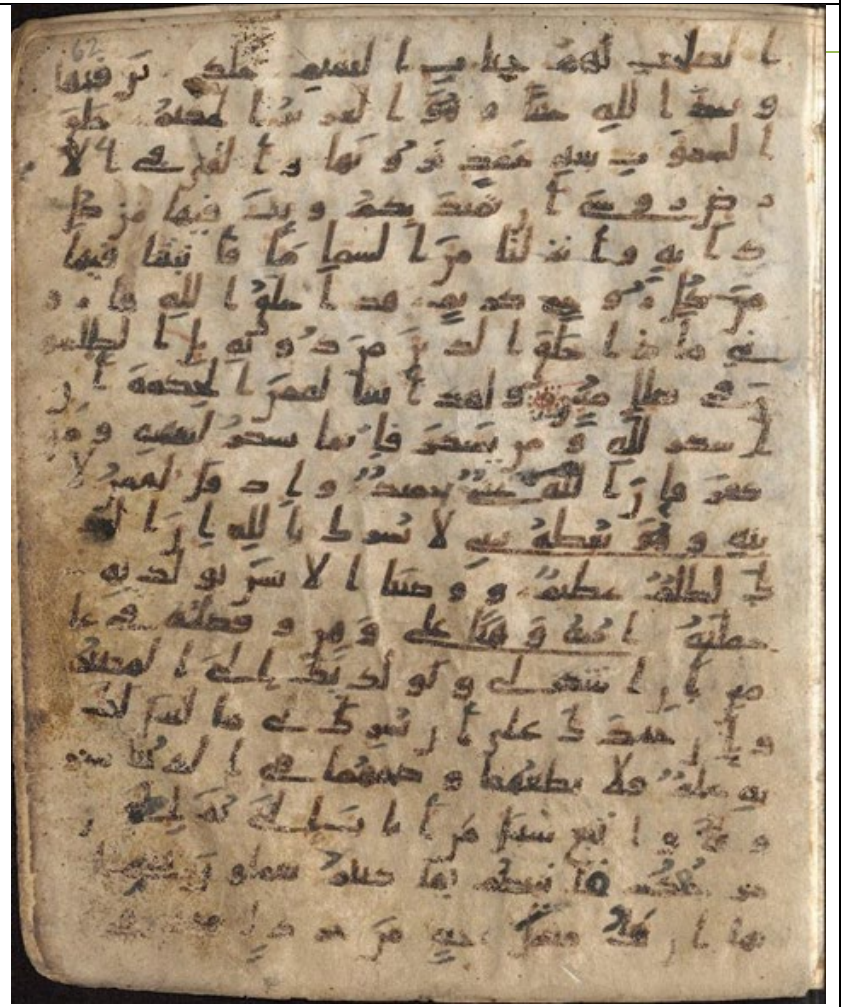 الصلحت لهم جنت النعيم خلدين فيها
وعد الله حقا وهو العزيز الحكيم خلق
السموت بغير عمد ترونها والقى في الا
رض روسي ان تميد بكم وبث فيها من كل
دابة وانزلنا من السما ما فانبتنا فيها
من كل زوج كريم هذا خلق الله فارو
ني ماذا خلق الذين من دونه بل الظلمو
ن في ضلل مبين ولقد اتينا لقمن الحكمة ان
اشكر لله ومن يشكر فانما يشكر لنفسه ومن
كفر فان الله غني حميد واذ قل لقمن لا
بنه وهو يعظه يبني لا تشرك بالله ان الشر
ك لظلم عظيم ووصينا الانسن بولديه
حملته امه وهنا على وهن وفصله في عا
مين ان اشكر لي ولولديك الي المصير
وان جهدك على ان تشرك بي ما ليس لك
به علم فلا تطعهما وصحبهما في الدنيا معر
وفا واتبع سبيل من اناب الي ثم الي
مرجعكم فانبئكم بما كنتم تعملون يبني
انها ان تك مثقل حبة من خردل